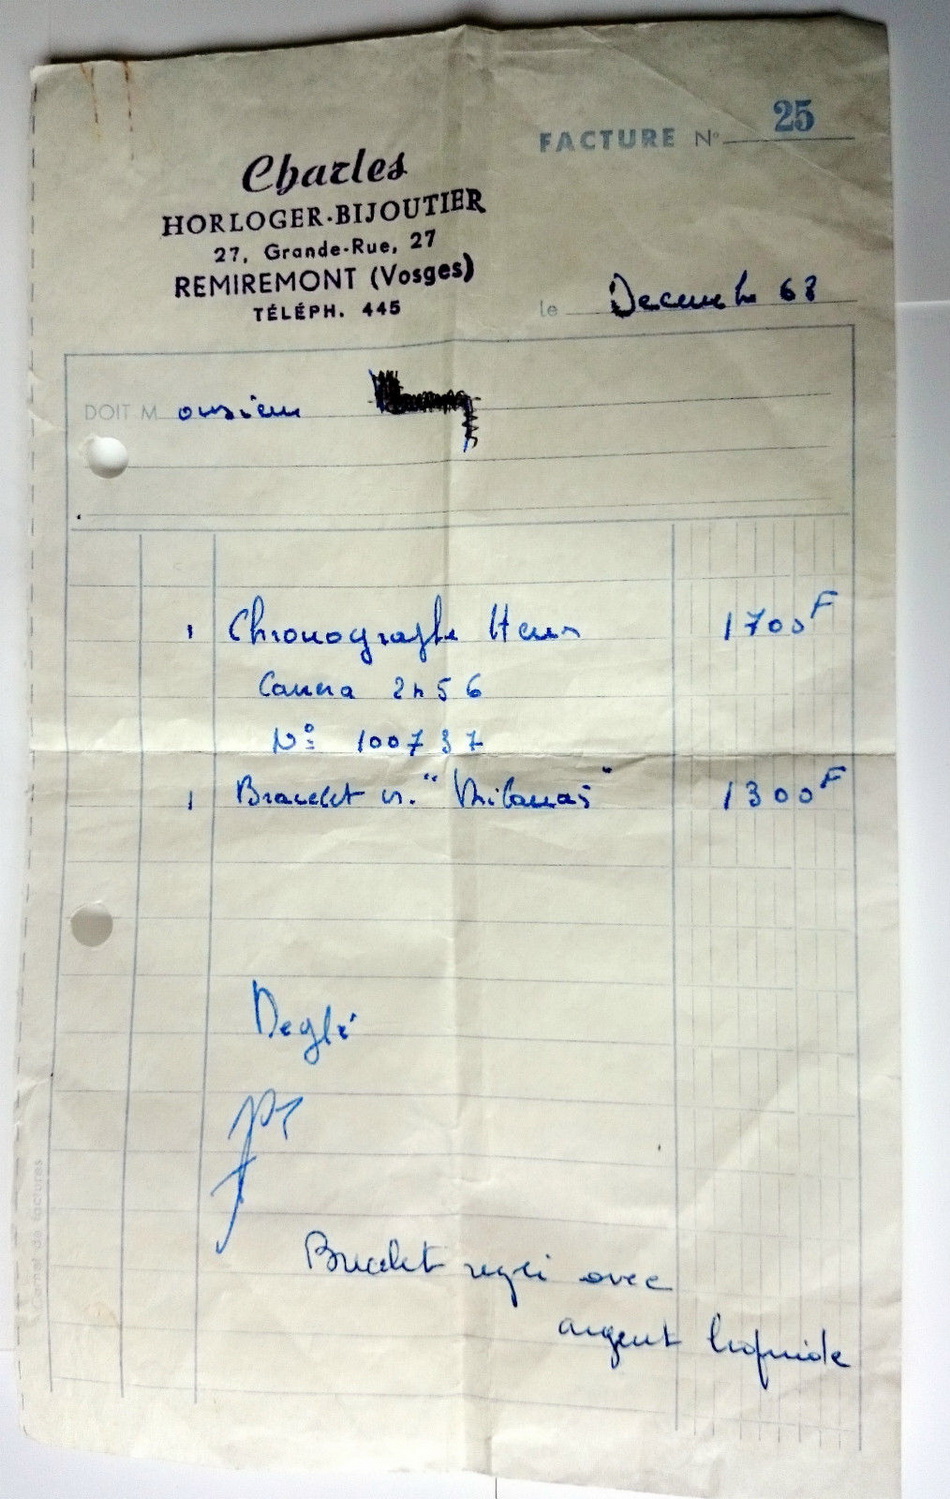 FACTURE N° 25
Charles
HORLOGER-BIJOUTIER
27, Grande-Rue, 27
REMIREMONT (Vosges)
TÉLÉPH. 445
le Decembre 68
DOIT Monsieur
1 Chronographe Heuer 1700F
Carrera 2456
N° 100737
1 Bracelet or. "Milanais" 1300F
Réglé
Bracelet reglé avec
argent liquide
Carnet de factures